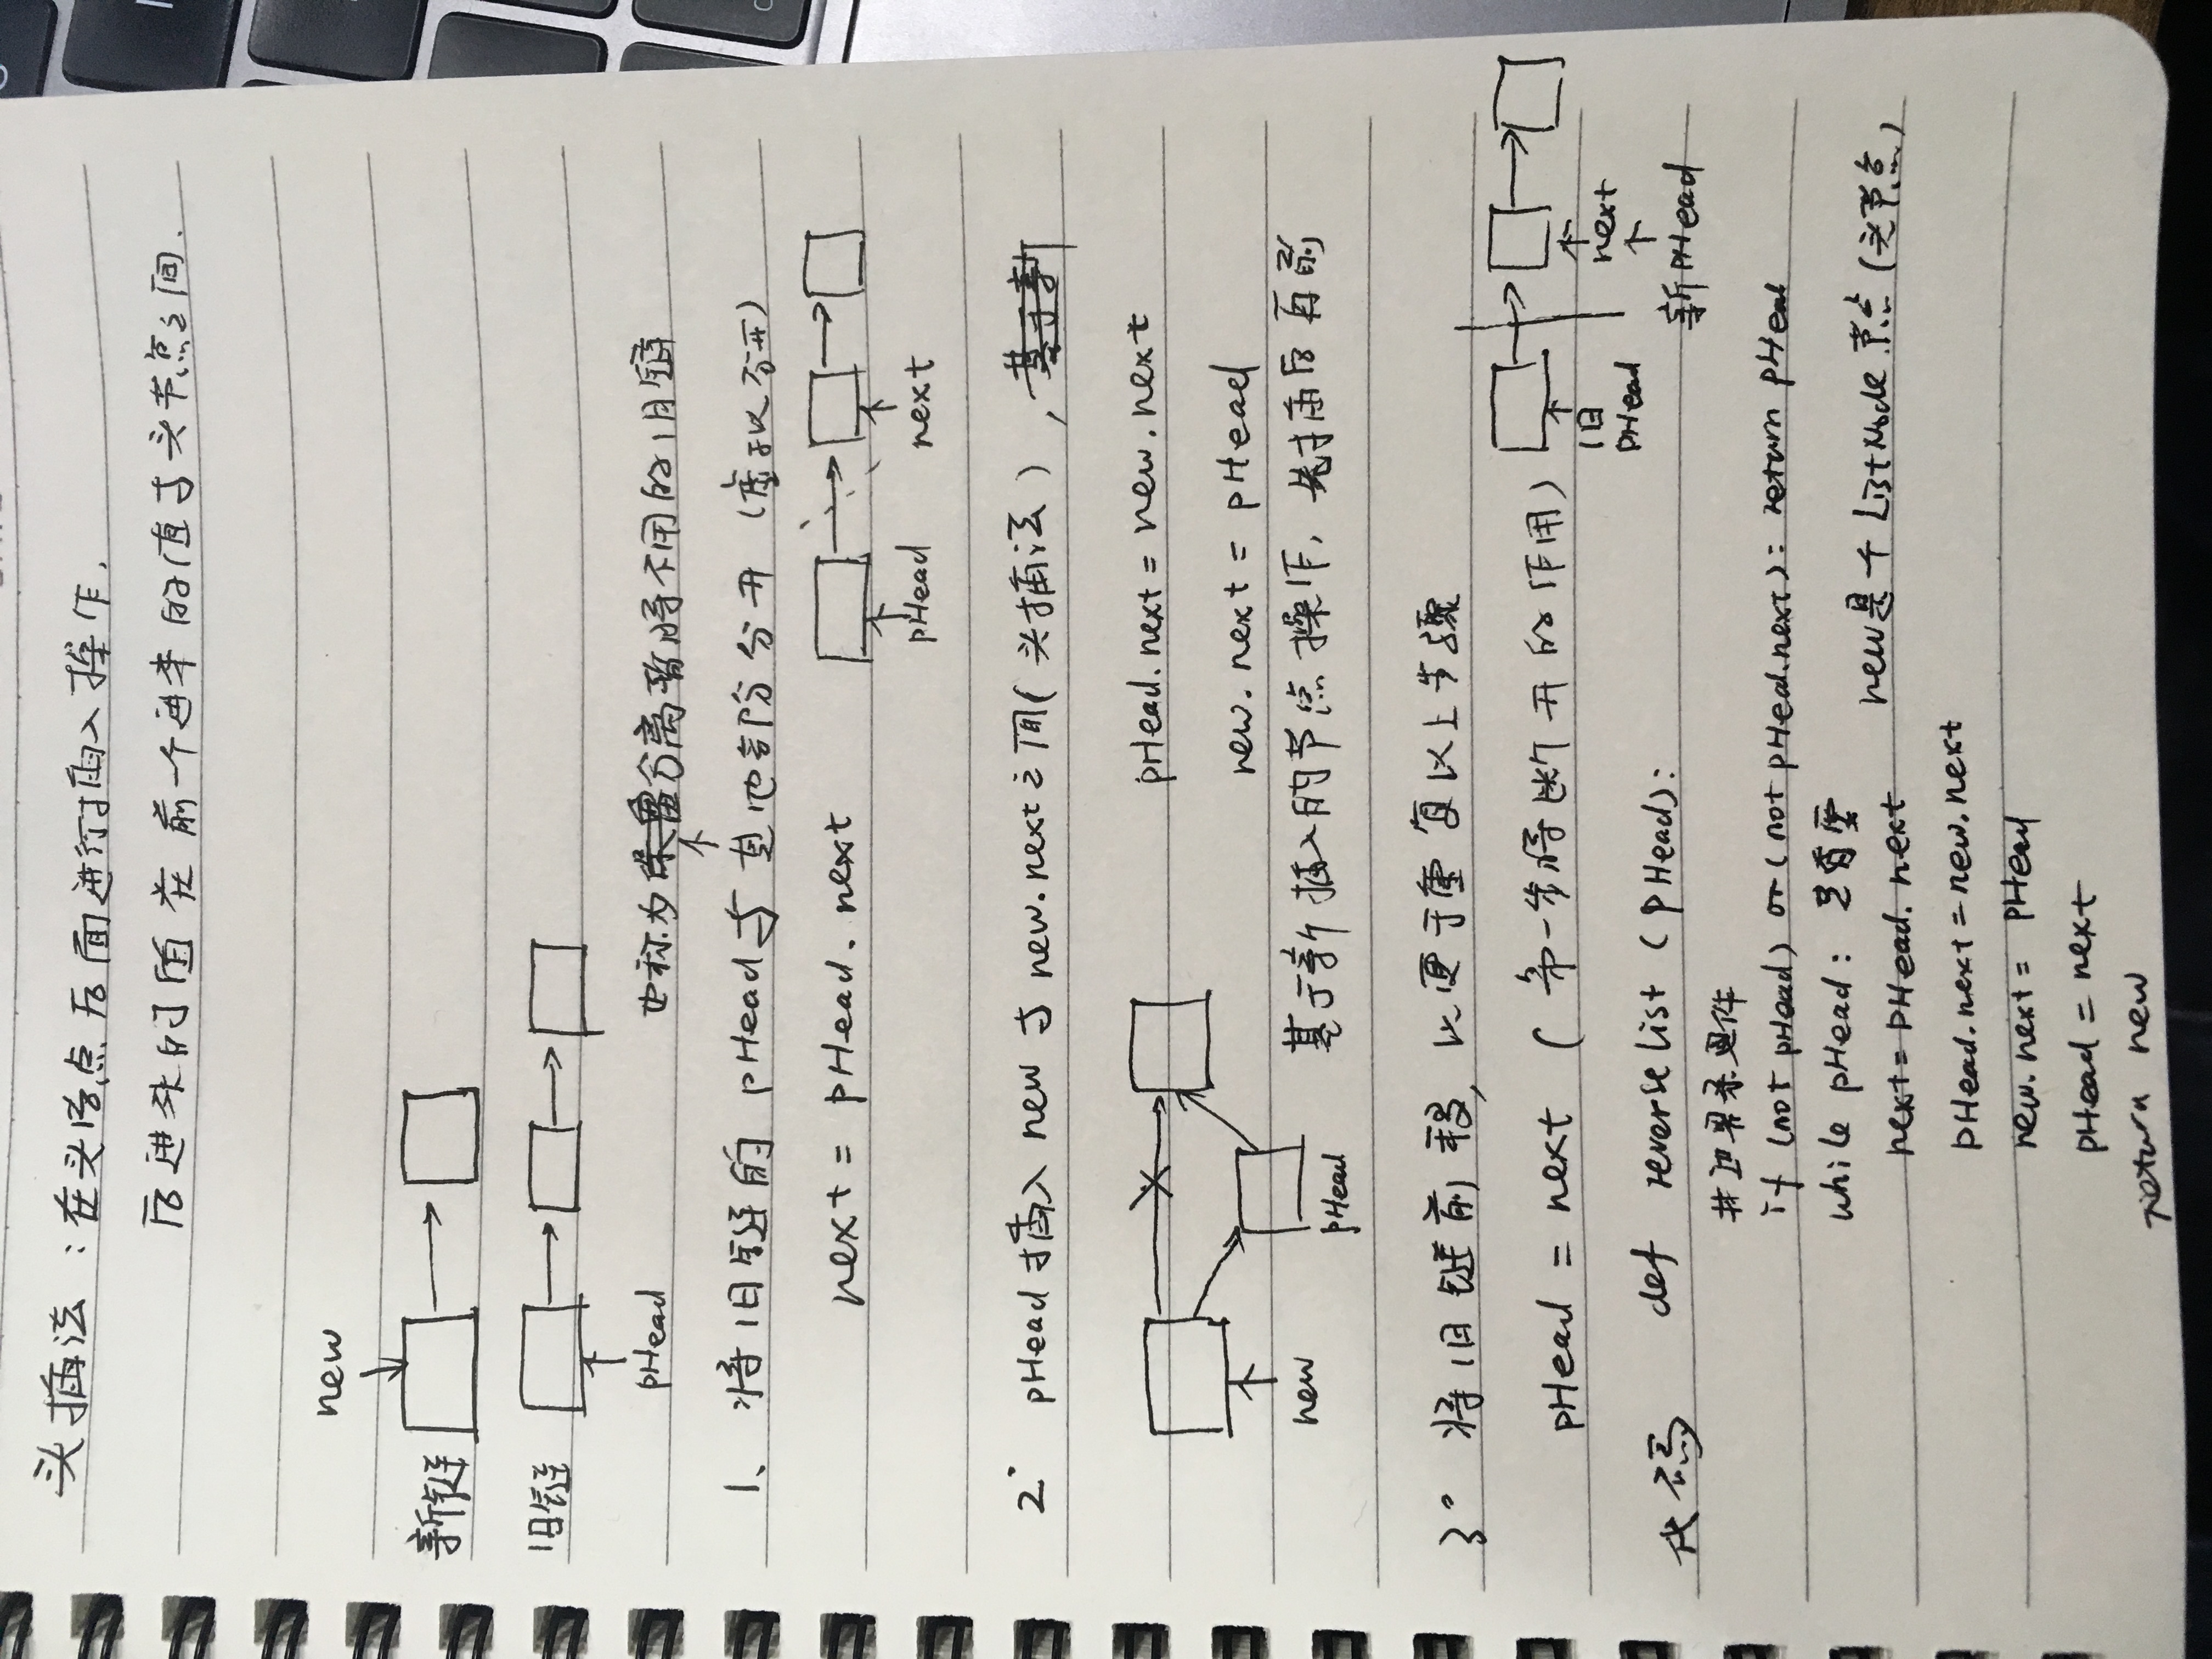 头插法：在头节点后面进行插入操作，
后进来的值在前一个进来的值与头节点之间．
new
新链
旧链
pHead
也称为保留分离暂时不用的旧链
1、将旧链的 pHead 与其他部分分开（虚拟分开）
next = pHead. next
pHead next
2° pHead 插入 new 与 new.next 之间（头插法），基于新
pHead.next = new.next
new. next = pHead
new
pHead
基于新插入的节点操作，先插后再前
3° 将旧链前移，以便于重复以上步骤
pHead = next（第一步将断开的作用）
旧 pHead
next
新 pHead
代码 def reverse list (pHead):
#边界条件
if (not pHead) or (not pHead.next): return pHead
while pHead: 是否空
new是个 ListNode 节点（头节点）
next = pHead. next
pHead.next = new.next
new.next = pHead
pHead = next
return new